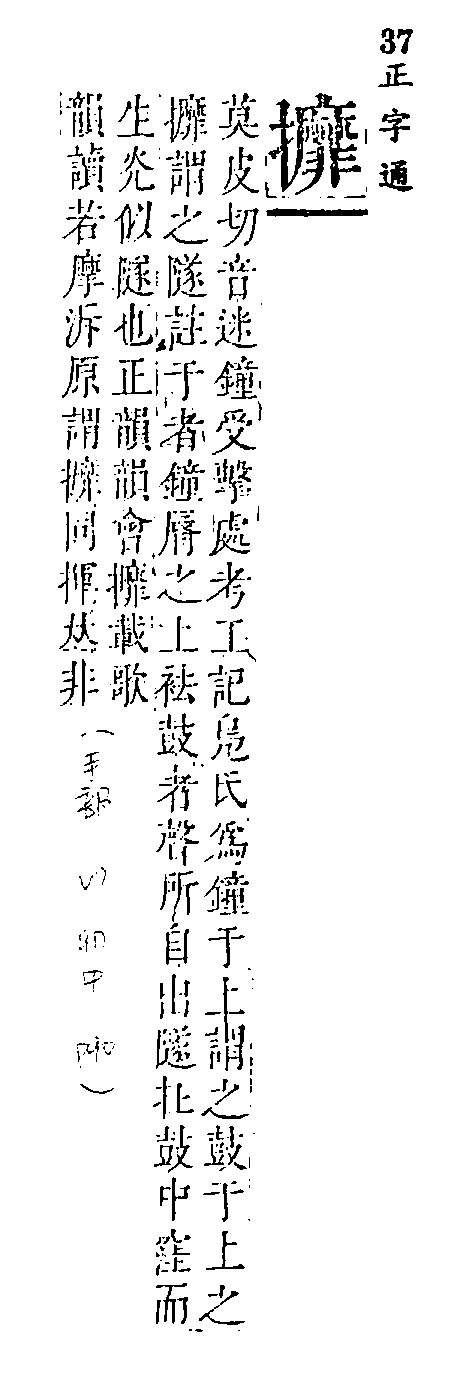 37正字通
攠
莫皮切音迷鐘受擊處考工記鳧氏爲鐘于上謂之鼓于上之
攠謂之隧註于者鐘脣之上袪鼓者聲所自出隧扗鼓中窪而
生灮似隧也正韻韻會攠載歌
韻讀若摩泝原謂攠同揮𠀤非
(手部